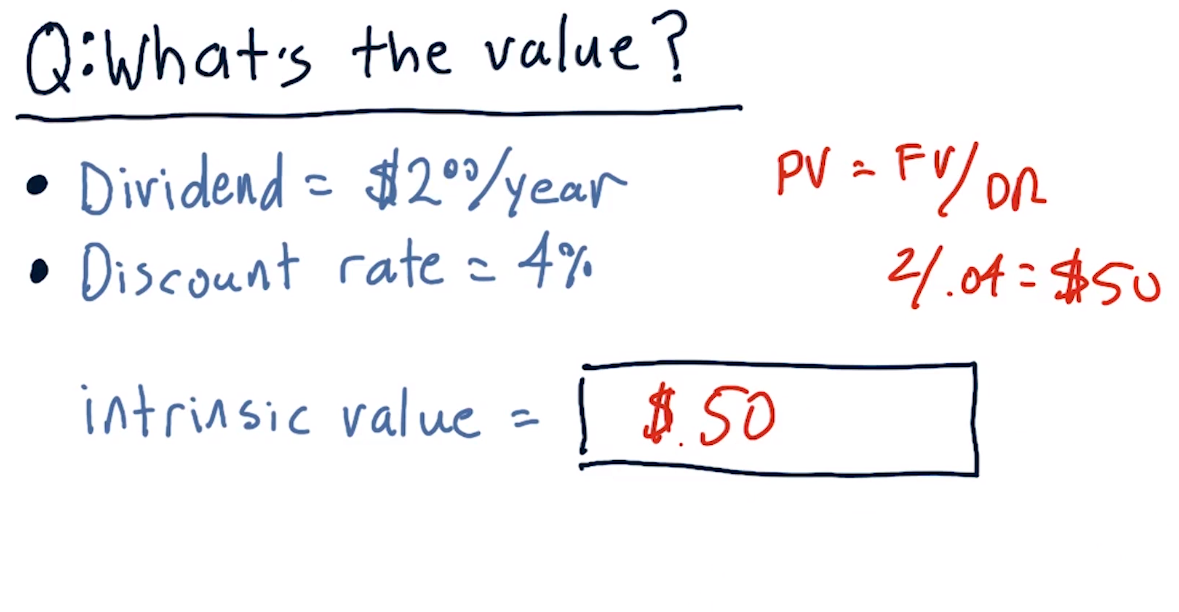 Q: What's the value?
• Dividend = $2⁰⁰/year
• Discount rate = 4%
PV = FV/DR
2/.04 = $50
intrinsic value = $.50